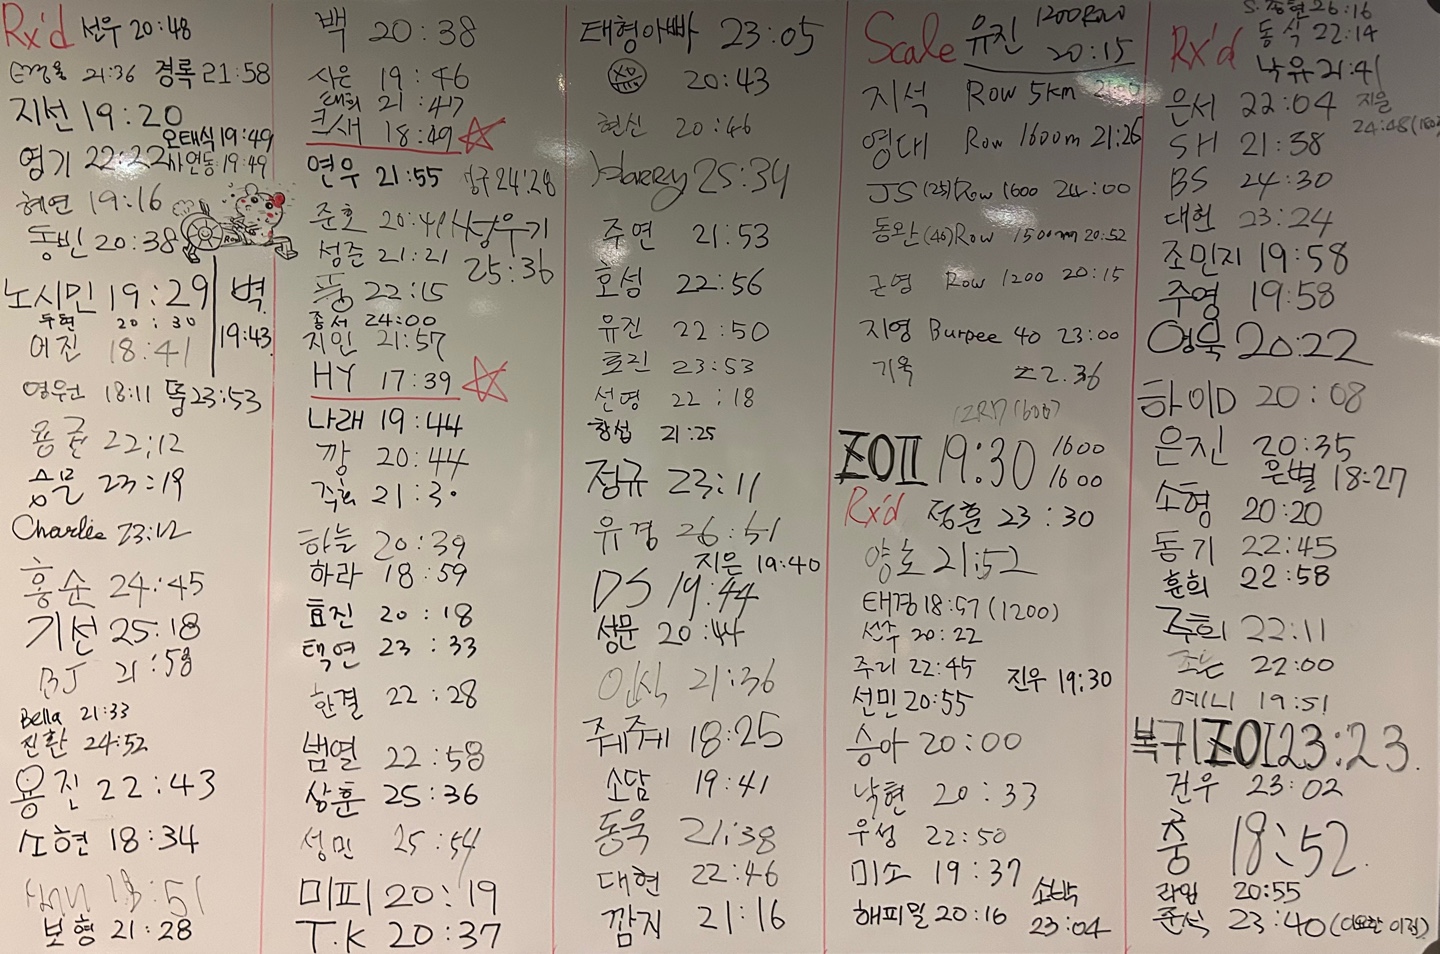 Rx'd 선우 20:48
21:36 경록 21:58
지선 19:20
오태식 19:49
영기 22:22 사연동 19:49
혜연 19:16
동빈 20:38
노시민 19:29 벽
두현 20:30 19:43
어진 18:41
영우 18:11 뚱 23:53
용굴 22:12
23:19
Charlie 23:12
홍순 24:45
기선 25:18
BJ 21:58
Bella 21:33
진환 24:52
용진 22:43
소현 18:34
18:51
보형 21:28
백 20:38
사은 19:46
태희 21:47
크새 18:49
연우 21:55 24:28
준호 20:41 사랑우기
성준 21:21 25:36
풍 22:15
종서 24:00
지인 21:57
HY 17:39
나래 19:44
깡 20:44
주희 21:30
하늘 20:39
하라 18:59
효진 20:18
택연 23:33
한결 22:28
범열 22:58
상훈 25:36
성민 25:54
미피 20:19
T.K 20:37
태형아빠 23:05
20:43
현신 20:46
Harry 25:34
주연 21:53
호섬 22:56
유진 22:50
효진 23:53
선명 22:18
창섭 21:25
정규 23:11
유경 26:51
지은 19:40
DS 19:44
상문 20:44
인식 21:36
쥬쥬 18:25
소담 19:41
동욱 21:38
대현 22:46
깜지 21:16
Scale 유진 1200Row
20:15
지석 Row 5km
영대 Row 1600m 21:26
JS (25) Row 1600 24:00
동완 (40) Row 1500m 20:52
근영 Row 1200 20:15
지영 Burpee 40 23:00
기욱 22.36
ZOII 19:30 1600
1600
Rx'd 정훈 23:30
양호 21:52
태경 18:57 (1200)
선수 20:22
주리 22:45 진우 19:30
선민 20:55
승아 20:00
낙현 20:33
우성 22:50
미소 19:37
소박
해피밀 20:16 23:04
S.종현 26:16
Rx'd 동식 22:14
낙유 21:41
은서 22:04 지율
SH 21:38 24:48
BS 24:30
대헌 23:24
조민지 19:58
주영 19:58
영욱 20:22
하이D 20:08
은진 20:35
은별 18:27
소형 20:20
동기 22:45
훈희 22:58
주희 22:11
22:00
예니 19:51
복귀 ZOI 23:23
건우 23:02
중 18:52
라임 20:55
준석 23:40